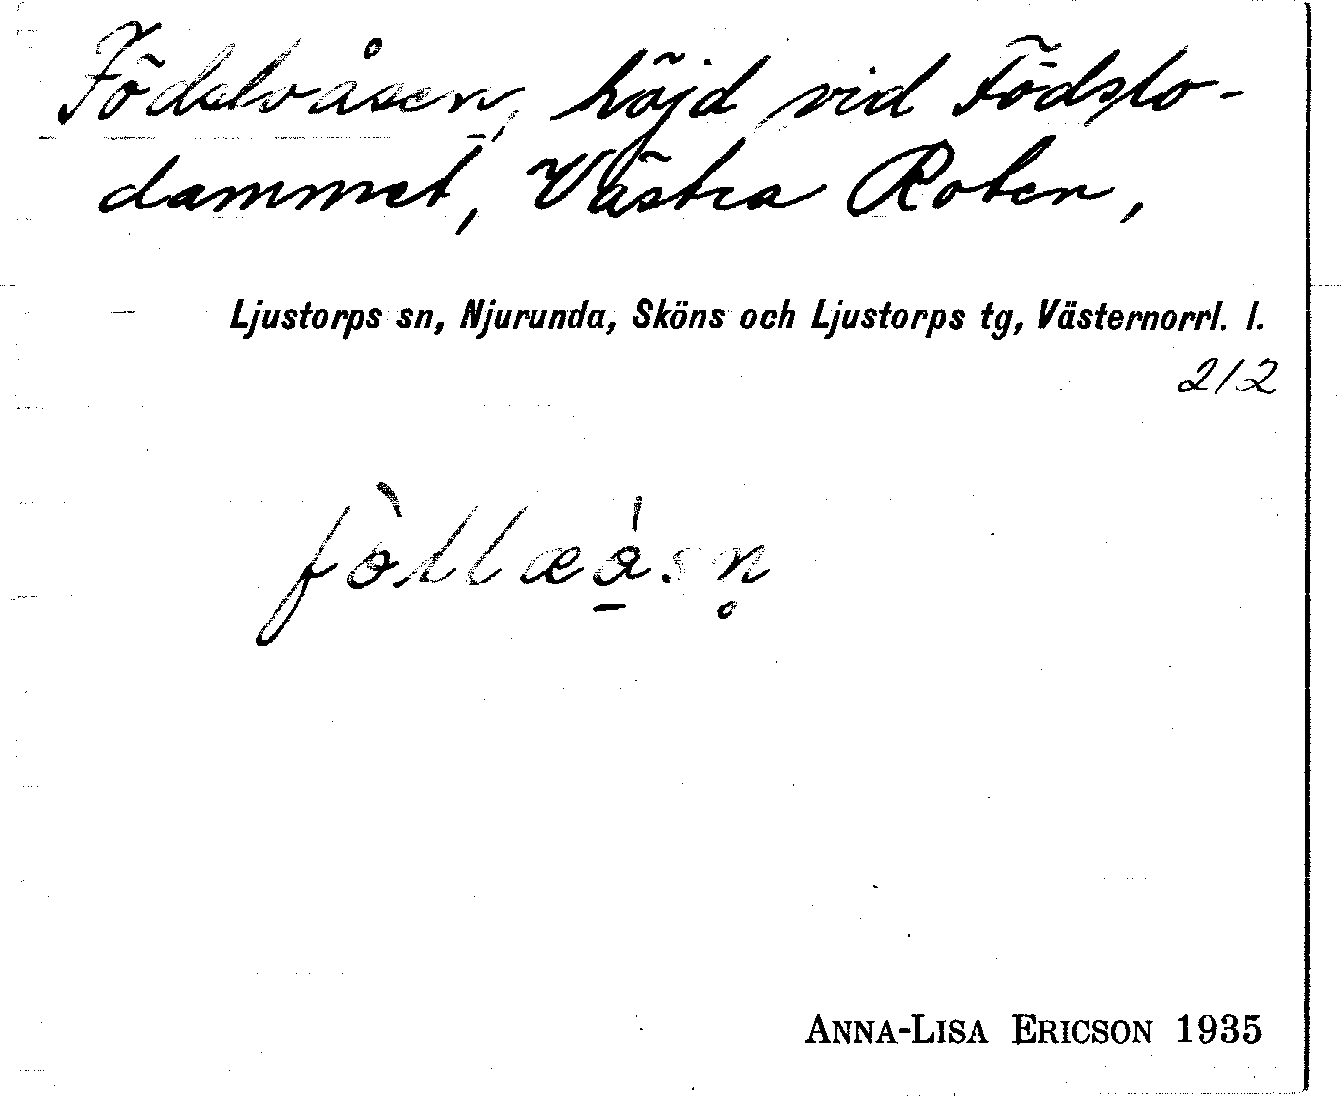 Födsloåsen, höjd vid Födslo-
dammet, Västra Roten,
Ljustorps sn, Njurunda, Sköns och Ljustorps tg, Västernorrl. l.
212
ANNA-LISA ERICSON 1935